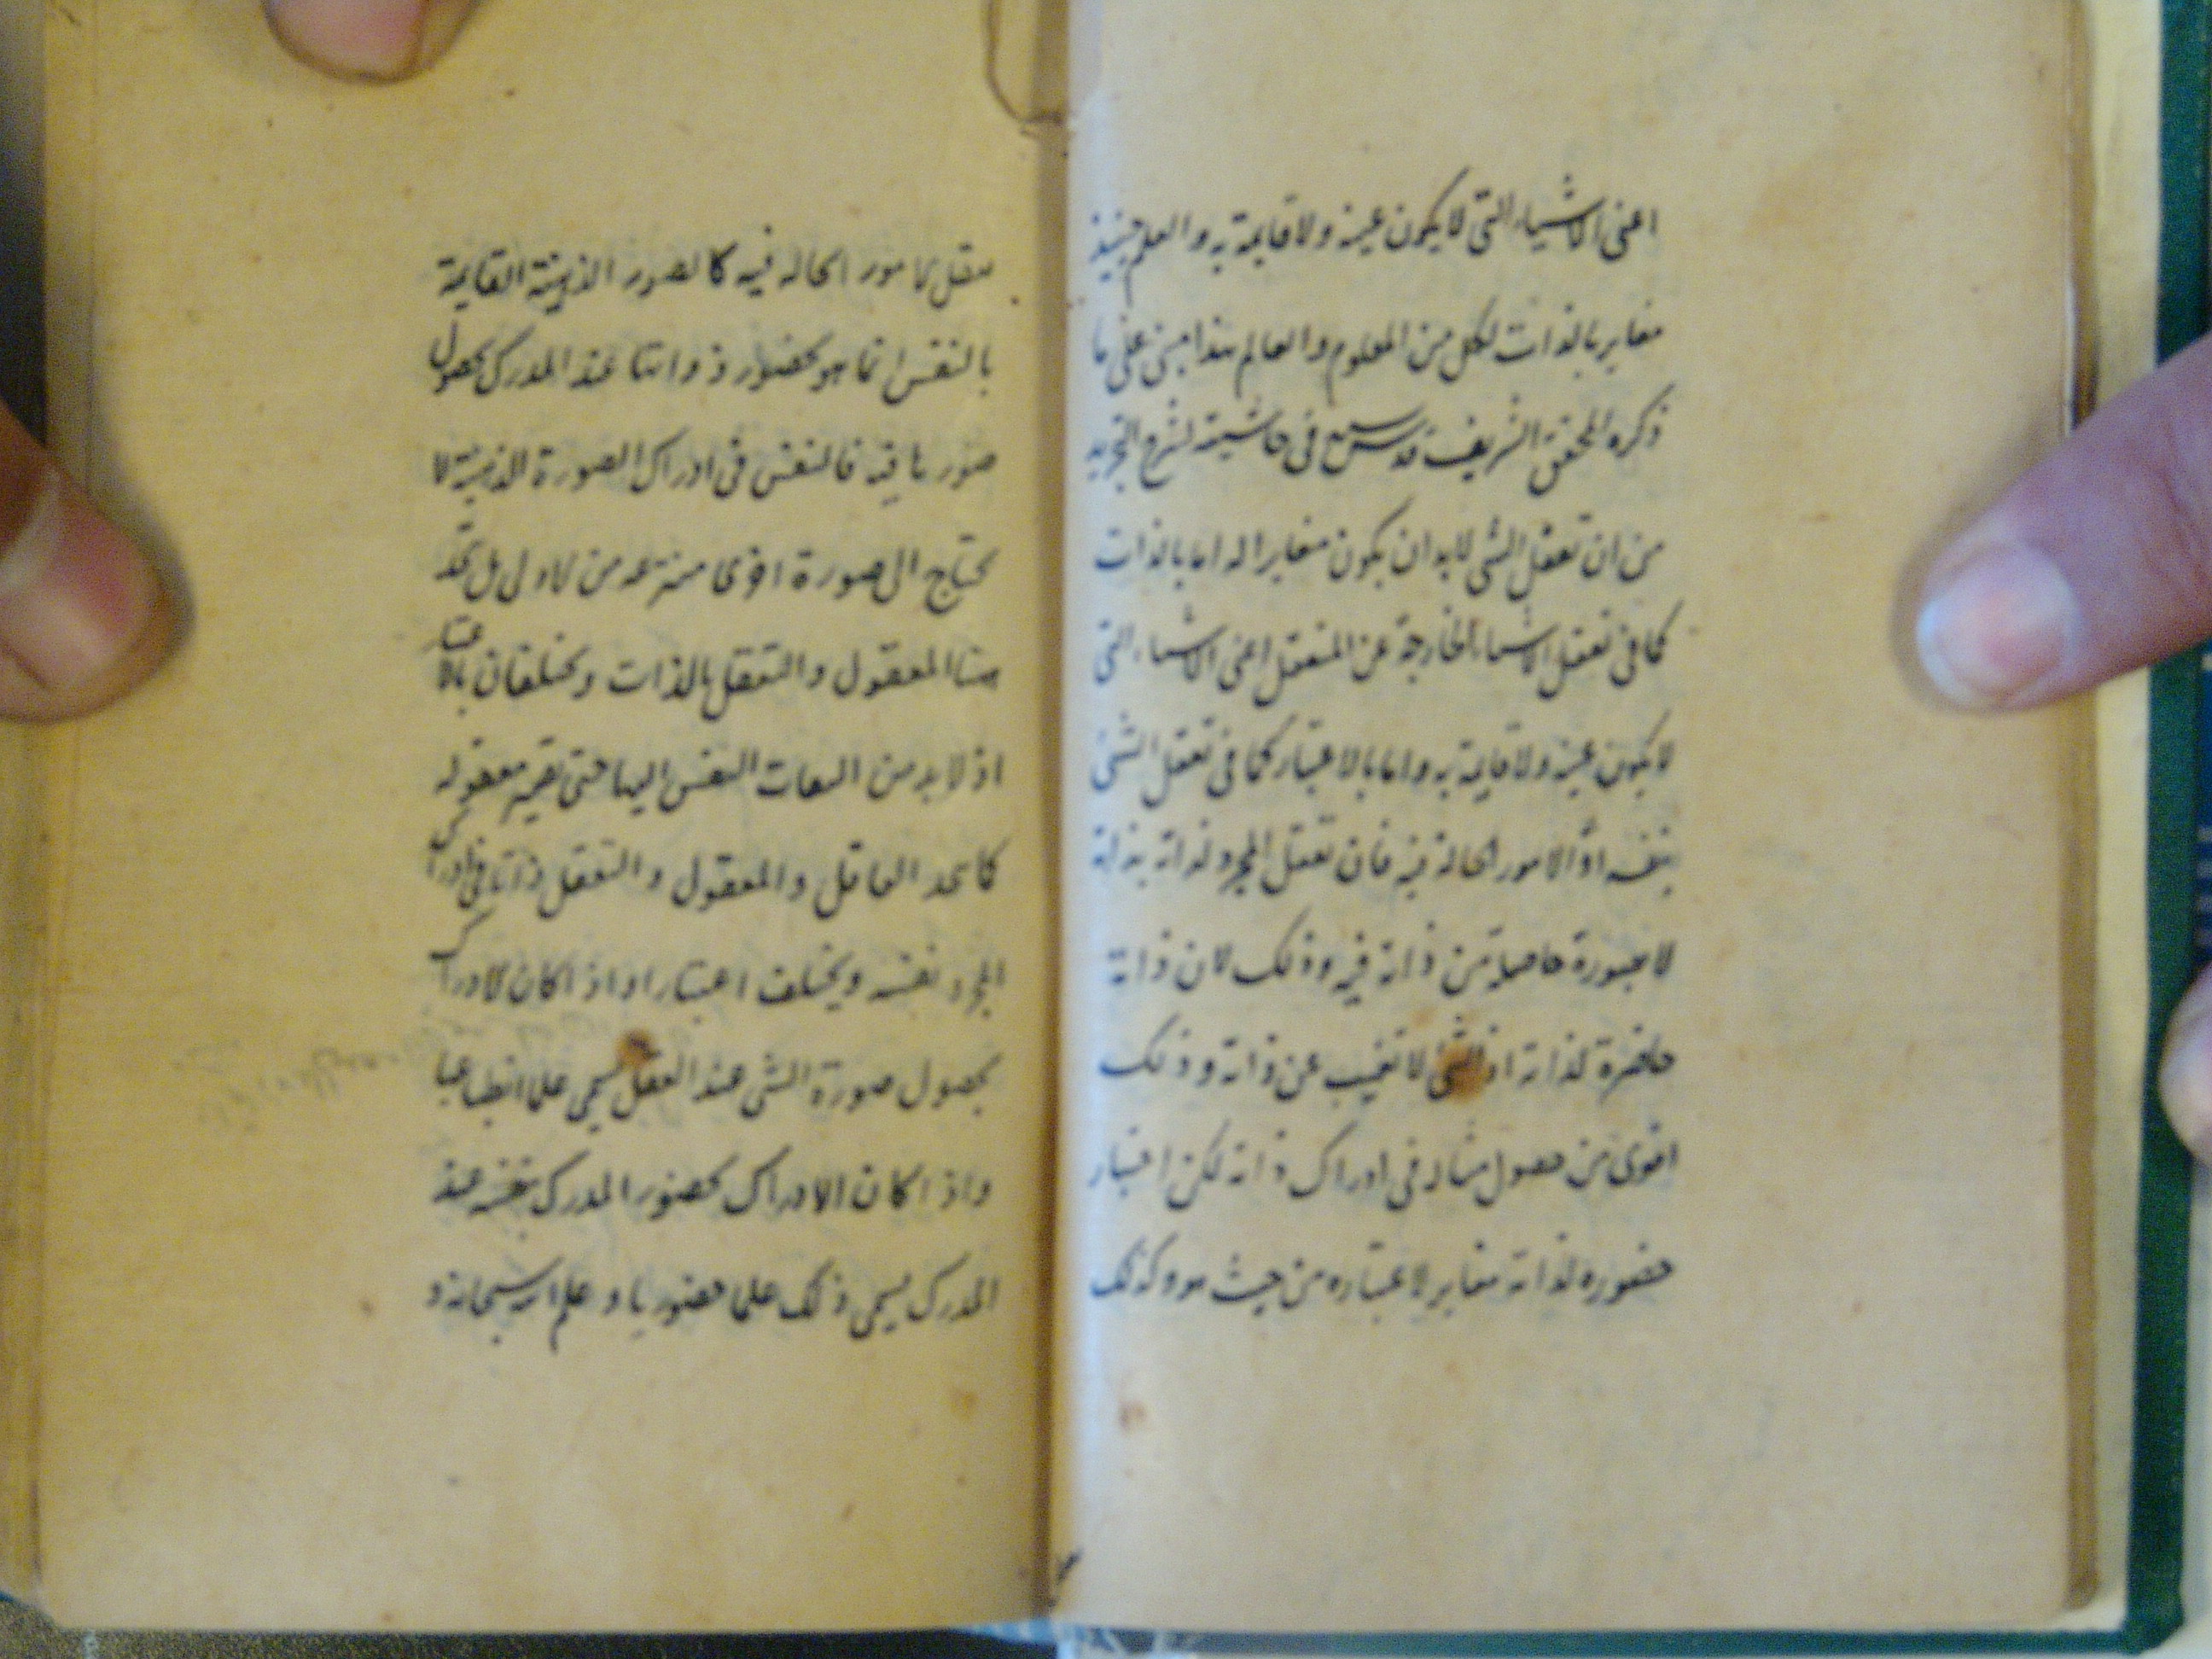 اعنى الاشياء التى لا يكون عينه ولا قايمة به والعلم حينئذ
مغاير بالذات لكل من المعلوم والعالم هذا مبنى على ما
ذكره المحقق الشريف قدس سره فى حاشيته لشرح التجريد
من ان تعقل الشى لابد ان يكون مغايرا له اما بالذات
كما فى تعقل الاشياء الخارجة عن المتعقل اعنى الاشياء التى
لا يكون عينه ولا قايمة به واما بالاعتبار كما فى تعقل الشى
بنفسه او الامور الحالة فيه فان تعقل المجرد لذاته بذاته
لا بصورة حاصلة من ذاته فيه وذلك لان ذاته
حاضرة لذاته اذ الشى لا تغيب عن ذاته وذلك
اقوى من حصول مثاله فى ادراك ذاته لكن اعتبار
حضوره لذاته مغاير لاعتباره من حيث هو وكذلك
تعقل الامور الحالة فيه كالصور الذهنية القايمة
بالنفس انما هو بحضور ذواتها عند المدرك لا بحصول
صورها فيه فالنفس فى ادراك الصورة الذهنية لا
يحتاج الى صورة اخرى منتزعة من الاولى بل يتحد
هنا المعقول والتعقل بالذات ويختلفان بالاعتبار
اذ لابد من التفات النفس اليها حتى تصير معقولة
كاتحاد العاقل والمعقول والتعقل ذاتا فى ادراك
المجرد نفسه ويختلف اعتبارا واذا كان الادراك
بحصول صورة الشى عند العقل يسمى علما انطباعيا
واذا كان الادراك بحضور المدرك بنفسه عند
المدرك يسمى ذلك علما حضوريا وعلم الله سبحانه و